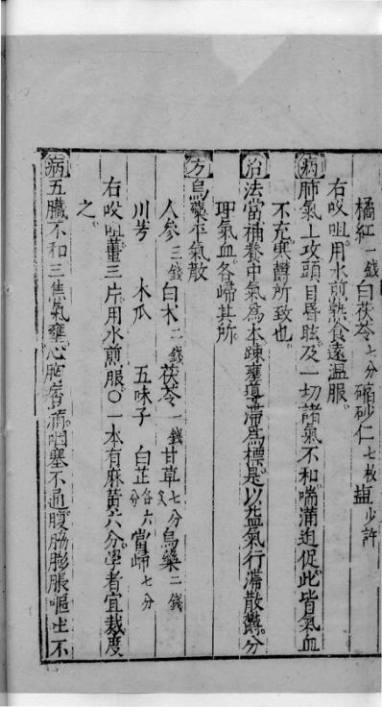 橘紅一錢白茯苓七分縮砂仁七枚塩少許
右㕮咀用水煎熱食遠溫服
病肺氣上攻頭目昏眩及一切諸氣不和喘滿迫促此皆氣血
不充寒欝所致也
治法當補養中氣爲本疎壅導滯爲標是以益氣行滯散欝分
理氣血各歸其所
方烏藥平氣散
人參三錢白术二錢茯苓一錢甘草七分炙烏藥二錢
川芎 木瓜 五味子 白芷各六分當歸七分
右㕮咀薑三片用水煎服○一本有麻黃六分學者宜裁度
之
病五臟不和三焦氣壅心胸痞滿咽塞不通腹脇膨脹嘔吐不